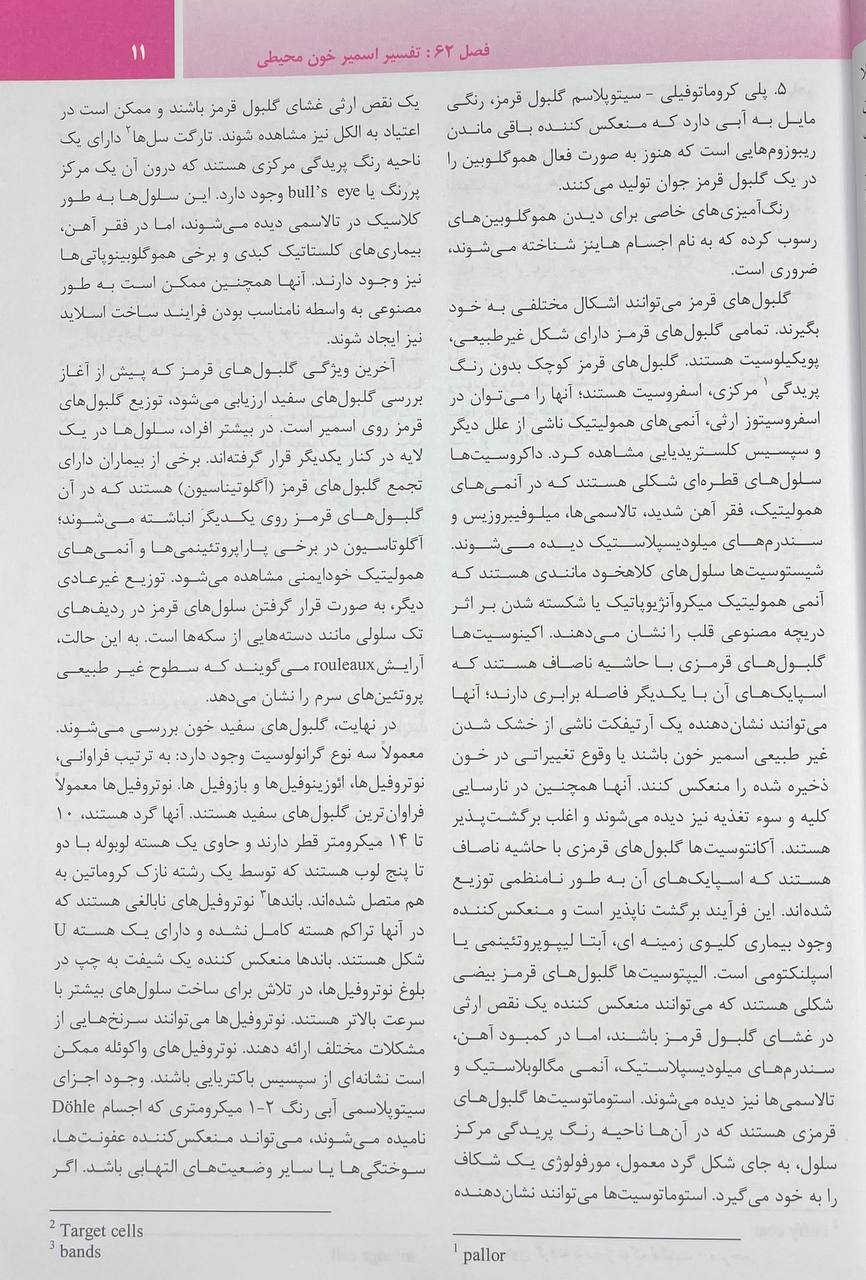 فصل ۶۲: تفسیر اسمیر خون محیطی
۱۱
۵. پلی کروماتوفیلی - سیتوپلاسم گلبول قرمز، رنگی
مایل به آبی دارد که منعکس کننده باقی ماندن
ریبوزوم‌هایی است که هنوز به صورت فعال هموگلوبین را
در یک گلبول قرمز جوان تولید می‌کنند.
رنگ‌آمیزی‌های خاصی برای دیدن هموگلوبین‌های
رسوب کرده که به نام اجسام هاینز شناخته می‌شوند،
ضروری است.
گلبول‌های قرمز می‌توانند اشکال مختلفی به خود
بگیرند. تمامی گلبول‌های قرمز دارای شکل غیرطبیعی،
پویکیلوسیت هستند. گلبول‌های قرمز کوچک بدون رنگ
پریدگی۱ مرکزی، اسفروسیت هستند؛ آنها را می‌توان در
اسفروسیتوز ارثی، آنمی‌های همولیتیک ناشی از علل دیگر
و سپسیس کلستریدیایی مشاهده کرد. داکروسیت‌ها
سلول‌های قطره‌ای شکلی هستند که در آنمی‌های
همولیتیک، فقر آهن شدید، تالاسمی‌ها، میلوفیبروزیس و
سندرم‌های میلودیسپلاستیک دیده می‌شوند.
شیستوسیت‌ها سلول‌های کلاهخود مانندی هستند که
آنمی همولیتیک میکروآنژیوپاتیک یا شکسته شدن بر اثر
دریچه مصنوعی قلب را نشان می‌دهند. اکینوسیت‌ها
گلبول‌های قرمزی با حاشیه ناصاف هستند که
اسپایک‌های آن با یکدیگر فاصله برابری دارند؛ آنها
می‌توانند نشان‌دهنده یک آرتیفکت ناشی از خشک شدن
غیر طبیعی اسمیر خون باشند یا وقوع تغییراتی در خون
ذخیره شده را منعکس کنند. آنها همچنین در نارسایی
کلیه و سوء تغذیه نیز دیده می‌شوند و اغلب برگشت‌پذیر
هستند. آکانتوسیت‌ها گلبول‌های قرمزی با حاشیه ناصاف
هستند که اسپایک‌های آن به طور نامنظمی توزیع
شده‌اند. این فرآیند برگشت ناپذیر است و منعکس‌کننده
وجود بیماری کلیوی زمینه ای، آبتا لیپوپروتئینمی یا
اسپلنکتومی است. الیپتوسیت‌ها گلبول‌های قرمز بیضی
شکلی هستند که می‌توانند منعکس کننده یک نقص ارثی
در غشای گلبول قرمز باشند، اما در کمبود آهن،
سندرم‌های میلودیسپلاستیک، آنمی مگالوبلاستیک و
تالاسمی‌ها نیز دیده می‌شوند. استوماتوسیت‌ها گلبول‌های
قرمزی هستند که در آن‌ها ناحیه رنگ پریدگی مرکز
سلول، به جای شکل گرد معمول، مورفولوژی یک شکاف
را به خود می‌گیرد. استوماتوسیت‌ها می‌توانند نشان‌دهنده
۱ pallor
یک نقص ارثی غشای گلبول قرمز باشند و ممکن است در
اعتیاد به الکل نیز مشاهده شوند. تارگت سل‌ها۲ دارای یک
ناحیه رنگ پریدگی مرکزی هستند که درون آن یک مرکز
پررنگ یا bull's eye وجود دارد. این سلول‌ها به طور
کلاسیک در تالاسمی دیده می‌شوند، اما در فقر آهن،
بیماری‌های کلستاتیک کبدی و برخی هموگلوبینوپاتی‌ها
نیز وجود دارند. آنها همچنین ممکن است به طور
مصنوعی به واسطه نامناسب بودن فرایند ساخت اسلاید
نیز ایجاد شوند.
آخرین ویژگی گلبول‌های قرمز که پیش از آغاز
بررسی گلبول‌های سفید ارزیابی می‌شود، توزیع گلبول‌های
قرمز روی اسمیر است. در بیشتر افراد، سلول‌ها در یک
لایه در کنار یکدیگر قرار گرفته‌اند. برخی از بیماران دارای
تجمع گلبول‌های قرمز (آگلوتیناسیون) هستند که در آن
گلبول‌های قرمز روی یکدیگر انباشته می‌شوند؛
آگلوتاسیون در برخی پاراپروتئینمی‌ها و آنمی‌های
همولیتیک خودایمنی مشاهده می‌شود. توزیع غیرعادی
دیگر، به صورت قرار گرفتن سلول‌های قرمز در ردیف‌های
تک سلولی مانند دسته‌هایی از سکه‌ها است. به این حالت،
آرایش rouleaux می‌گویند که سطوح غیر طبیعی
پروتئین‌های سرم را نشان می‌دهد.
در نهایت، گلبول‌های سفید خون بررسی می‌شوند.
معمولاً سه نوع گرانولوسیت وجود دارد: به ترتیب فراوانی،
نوتروفیل‌ها، ائوزینوفیل‌ها و بازوفیل ها. نوتروفیل‌ها معمولاً
فراوان‌ترین گلبول‌های سفید هستند. آنها گرد هستند، ۱۰
تا ۱۴ میکرومتر قطر دارند و حاوی یک هسته لوبوله با دو
تا پنج لوب هستند که توسط یک رشته نازک کروماتین به
هم متصل شده‌اند. باندها۳ نوتروفیل‌های نابالغی هستند که
در آنها تراکم هسته کامل نشده و دارای یک هسته U
شکل هستند. باندها منعکس کننده یک شیفت به چپ در
بلوغ نوتروفیل‌ها، در تلاش برای ساخت سلول‌های بیشتر با
سرعت بالاتر هستند. نوتروفیل‌ها می‌توانند سرنخ‌هایی از
مشکلات مختلف ارائه دهند. نوتروفیل‌های واکوئله ممکن
است نشانه‌ای از سپسیس باکتریایی باشند. وجود اجزای
سیتوپلاسمی آبی رنگ ۲-۱ میکرومتری که اجسام Döhle
نامیده می‌شوند، می‌تواند منعکس‌کننده عفونت‌ها،
سوختگی‌ها یا سایر وضعیت‌های التهابی باشد. اگر
2 Target cells
3 bands